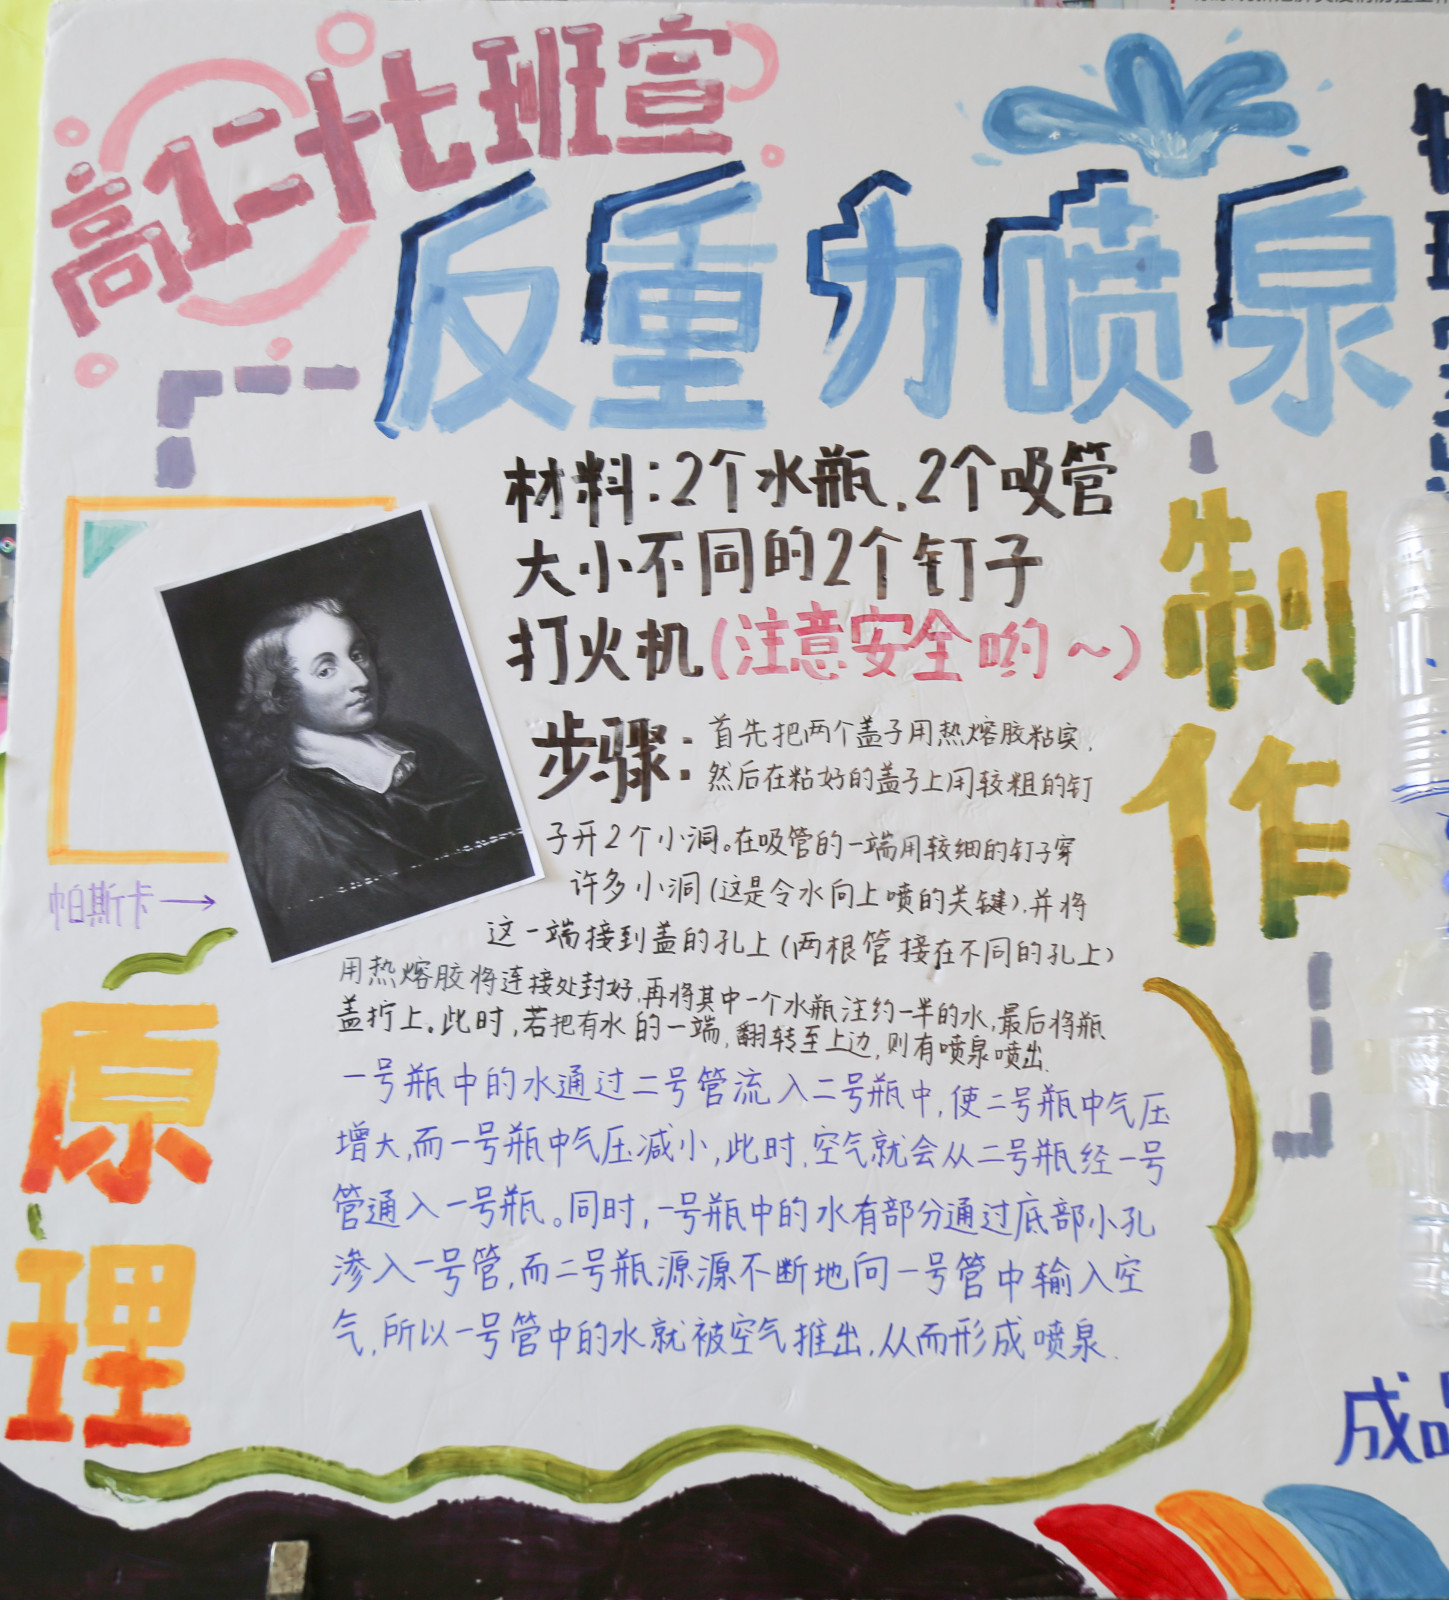 高1二十七班宣
反重力喷泉
材料：2个水瓶，2个吸管
大小不同的2个钉子
打火机(注意安全哟～)
制作
步骤：
首先把两个盖子用热熔胶粘实，
然后在粘好的盖子上用较粗的钉
子开2个小洞。在吸管的一端用较细的钉子穿
许多小洞(这是令水向上喷的关键)，并将
这一端接到盖的孔上(两根管接在不同的孔上)
用热熔胶将连接处封好，再将其中一个水瓶注约一半的水，最后将瓶
盖拧上。此时，若把有水的一端，翻转至上边，则有喷泉喷出.
帕斯卡→
原理
一号瓶中的水通过二号管流入二号瓶中，使二号瓶中气压
增大，而一号瓶中气压减小，此时，空气就会从二号瓶经一号
管通入一号瓶。同时，一号瓶中的水有部分通过底部小孔
渗入一号管，而二号瓶源源不断地向一号管中输入空
气，所以一号管中的水就被空气推出，从而形成喷泉.
成品